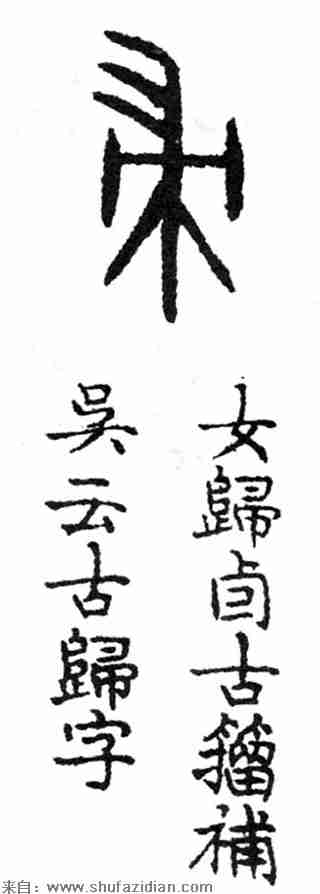 女歸卣古籀補
吳云古歸字
来自：www.shufazidian.com